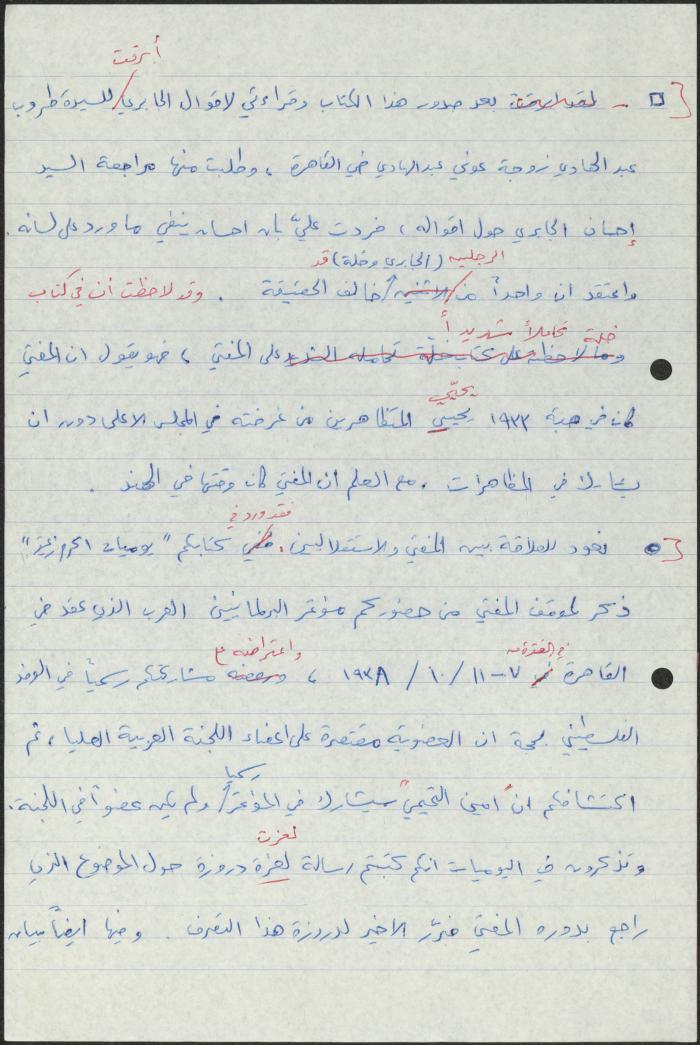 أبرقت
□ - لقد ابرقت بعد صدور هذا الكتاب وقراءتي لاقوال الجابري / للسيدة طروب
عبد الهادي زوجة عوني عبد الهادي في القاهرة ، وطلبت منها مراجعة السيد
إحسان الجابري حول اقواله ، فردت عليّ بان احسان ينفي ما ورد على لسانه .
الرجلين (الجابري وخلة) قد
واعتقد ان واحداً من الاثنين / خالف الحقيقة . وقد لاحظت أن في كتاب
خلة تحاملاً شديداً
وما لاحظته على كتاب خلّة تحامله الشديد على المفتي ، فهو يقول ان المفتي
يحيّي
كان في هبة ١٩٣٣ يحيي المتظاهرين من غرفته في المجلس الاعلى دون ان
يشارك في المظاهرات ، مع العلم أن المفتي كان وقتها في الهند .
فقد ورد في
● نعود للعلاقة بين المفتي والاستقلاليين . ففي كتابكم "يوميات اكرم زعيتر"
ذكر لموقف المفتي من حضوركم مؤتمر البرلمانيين العرب الذي عقد في
في الفترة من واعتراضه على
القاهرة في ٧-١١ / ١٠ / ١٩٣٨ ، ورفضه مشاركتكم رسمياً في الوفد
الفلسطيني بحجة ان العضوية مقتصرة على اعضاء اللجنة العربية العليا ، ثم
رسميا
اكتشافكم ان "امين التميمي" سيشارك في المؤتمر / ولم يكن عضواً في اللجنة .
لعزت
وتذكرون في اليوميات انكم كتبتم رسالة لعزة دروزة حول الموضوع الذي
راجع بدوره المفتي فبرّر الاخير لدروزة هذا التصرف . وفيها ايضاً بيان